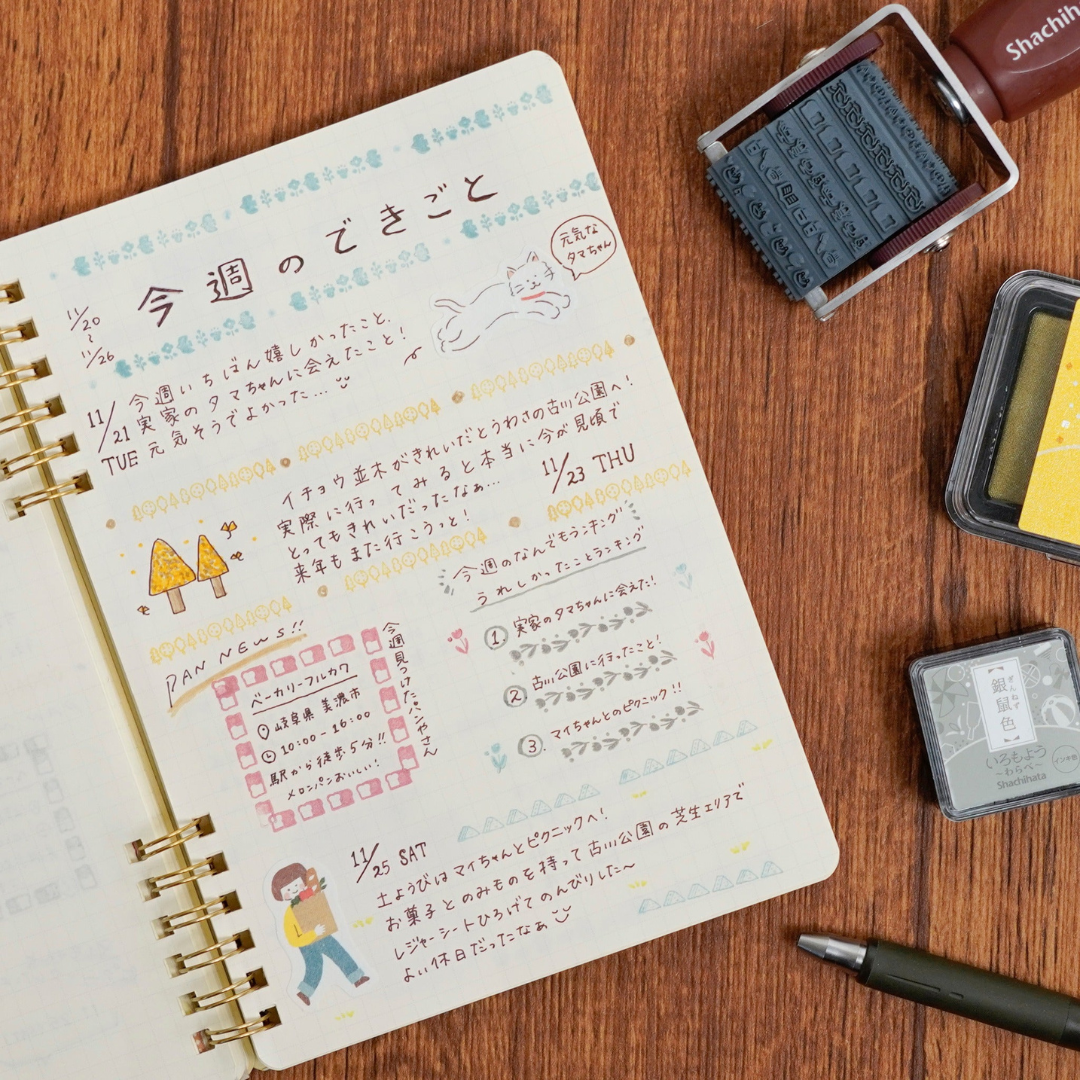 今週のできごと
11/20
~
11/26
元気な
タマちゃん
11/21
TUE
今週いちばん嬉しかったこと、
実家のタマちゃんに会えたこと!
元気そうでよかった…
イチョウ並木がきれいだとうわさの古川公園へ!
実際に行ってみると本当に今が見頃で
とってもきれいだったなぁ…
来年もまた行こうっと!
11/23 THU
PAN NEWS!!
今週見つけたパンやさん
ベーカリーフルカワ
岐阜県 美濃市
10:00-16:00
駅から徒歩5分!!
メロンパンおいしい!
今週のなんでもランキング
うれしかったことランキング
① 実家のタマちゃんに会えた!
② 古川公園に行ったこと!
③. マイちゃんとのピクニック!!
11/25 SAT
土ようびはマイちゃんとピクニックへ!
お菓子とのみものを持って古川公園の芝生エリアで
レジャーシートひろげてのんびりした~
よい休日だったなぁ
Shachih
ぎんねず
銀鼠色
いろもよう
~わらべ~
インキ台
Shachihata